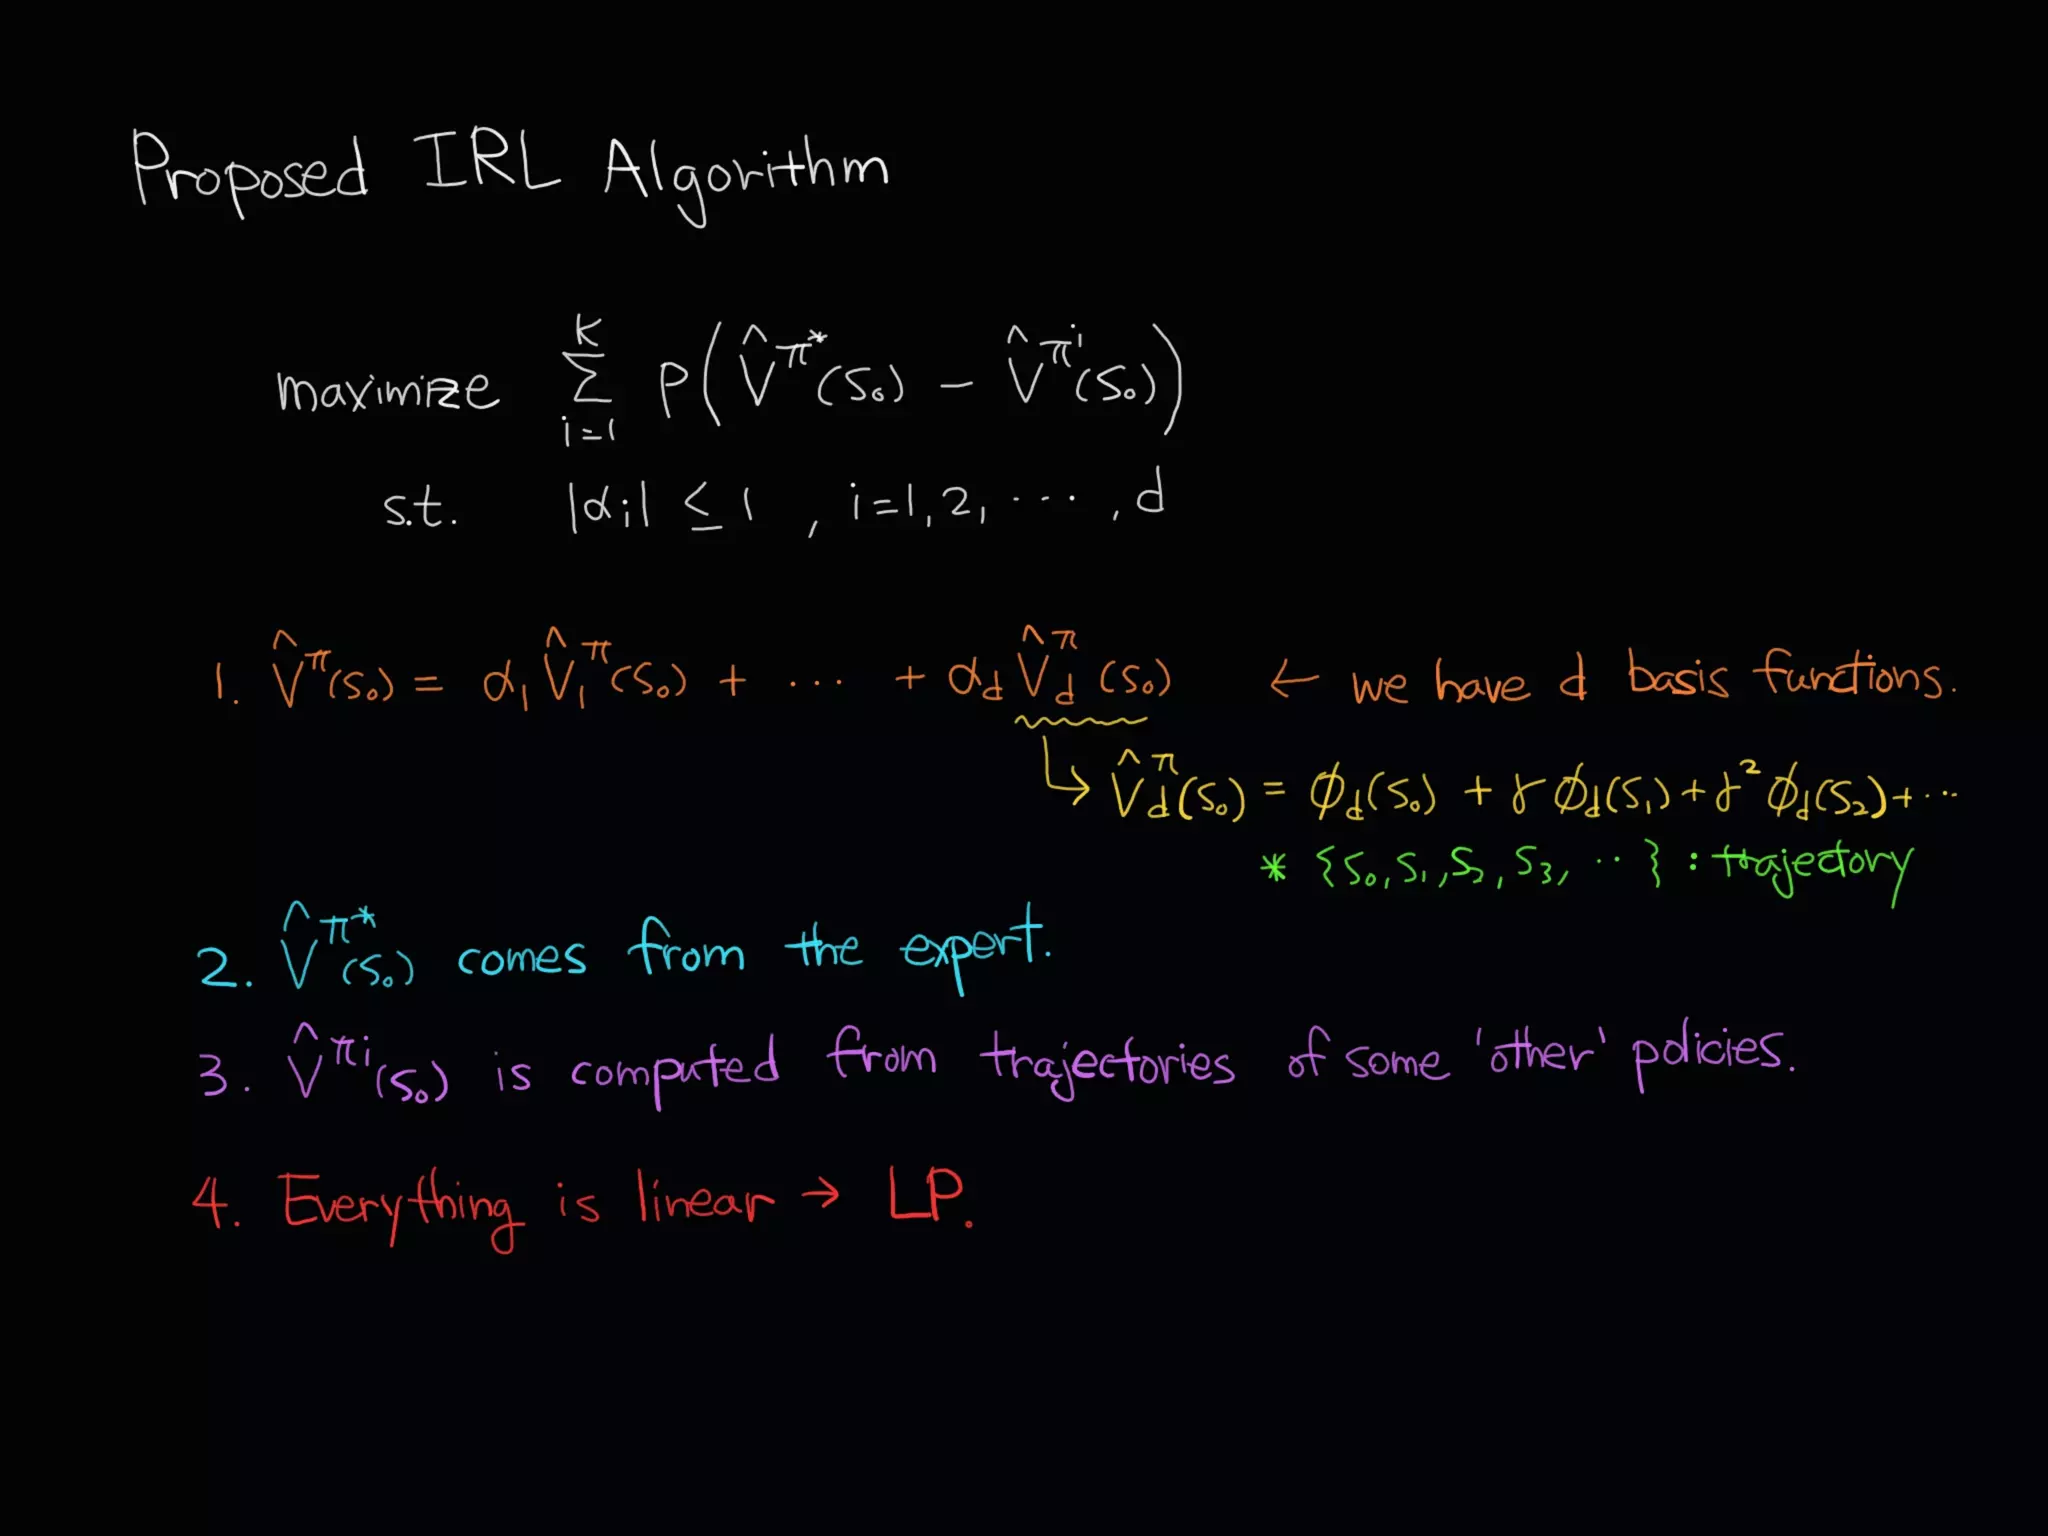 Proposed IRL Algorithm
maximize ∑_{i=1}^{K} P( V̂^{π*}(s₀) − V̂^{πⁱ}(s₀) )
s.t. |αᵢ| ≤ 1 , i=1, 2, ⋯ , d
1. V̂^π(s₀) = α₁V̂₁^π(s₀) + ⋯ + α_d V̂_d^π(s₀) ← we have d basis functions.
↳ V̂_d^π(s₀) = ϕ_d(s₀) + γ ϕ_d(s₁) + γ² ϕ_d(s₂) + ⋯
* {s₀, s₁, s₂, s₃, ‥ } : trajectory
2. V̂^{π*}(s₀) comes from the expert.
3. V̂^{πi}(s₀) is computed from trajectories of some 'other' policies.
4. Everything is linear → LP.